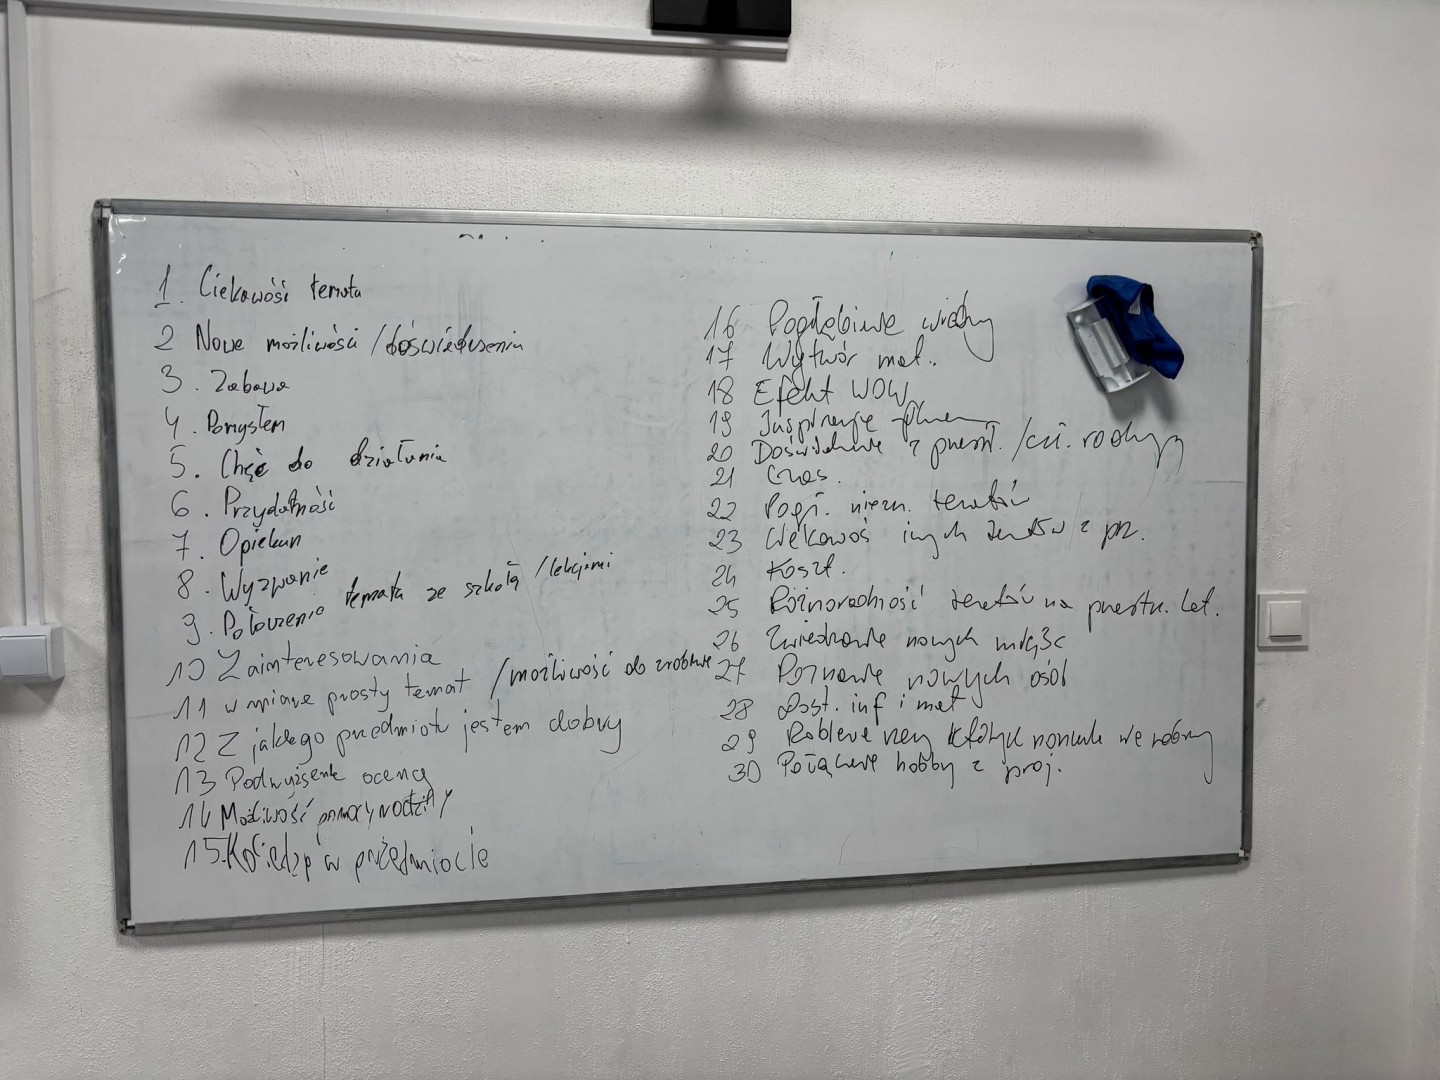 1. Ciekawość temata
2 Nowe możliwości / doświadczenia
3. Zabawa
4. Pomysłem
5. Chęć do działania
6. Przydatność
7. Opiekun
8. Wyzwanie
9. Połączenie temata ze szkołą / lekcjami
10 Zainteresowania
11 w miarę prosty temat / możliwość do zrobienia
12 Z jakiego przedmiotu jestem dobry
13 Podwyższenie oceny
14 Możliwość pomocy rodziny
15. w przedmiocie
16 Pogłębienie wiedzy
17 Wytwór mat.
18 Efekt WOW
19 Inspiracje
20 Doświadczenie z /
21 Czas.
22 tematów
23 Ciekawość innych tematów z pr.
24 Koszt.
25 Różnorodność tematów na przestrz. lat.
26 Zwiedzanie nowych miejsc
27 Poznanie nowych osób
28 Dost. inf i mat
29 Robienie rzeczy których normalnie nie robimy
30 Połączenie hobby z proj.